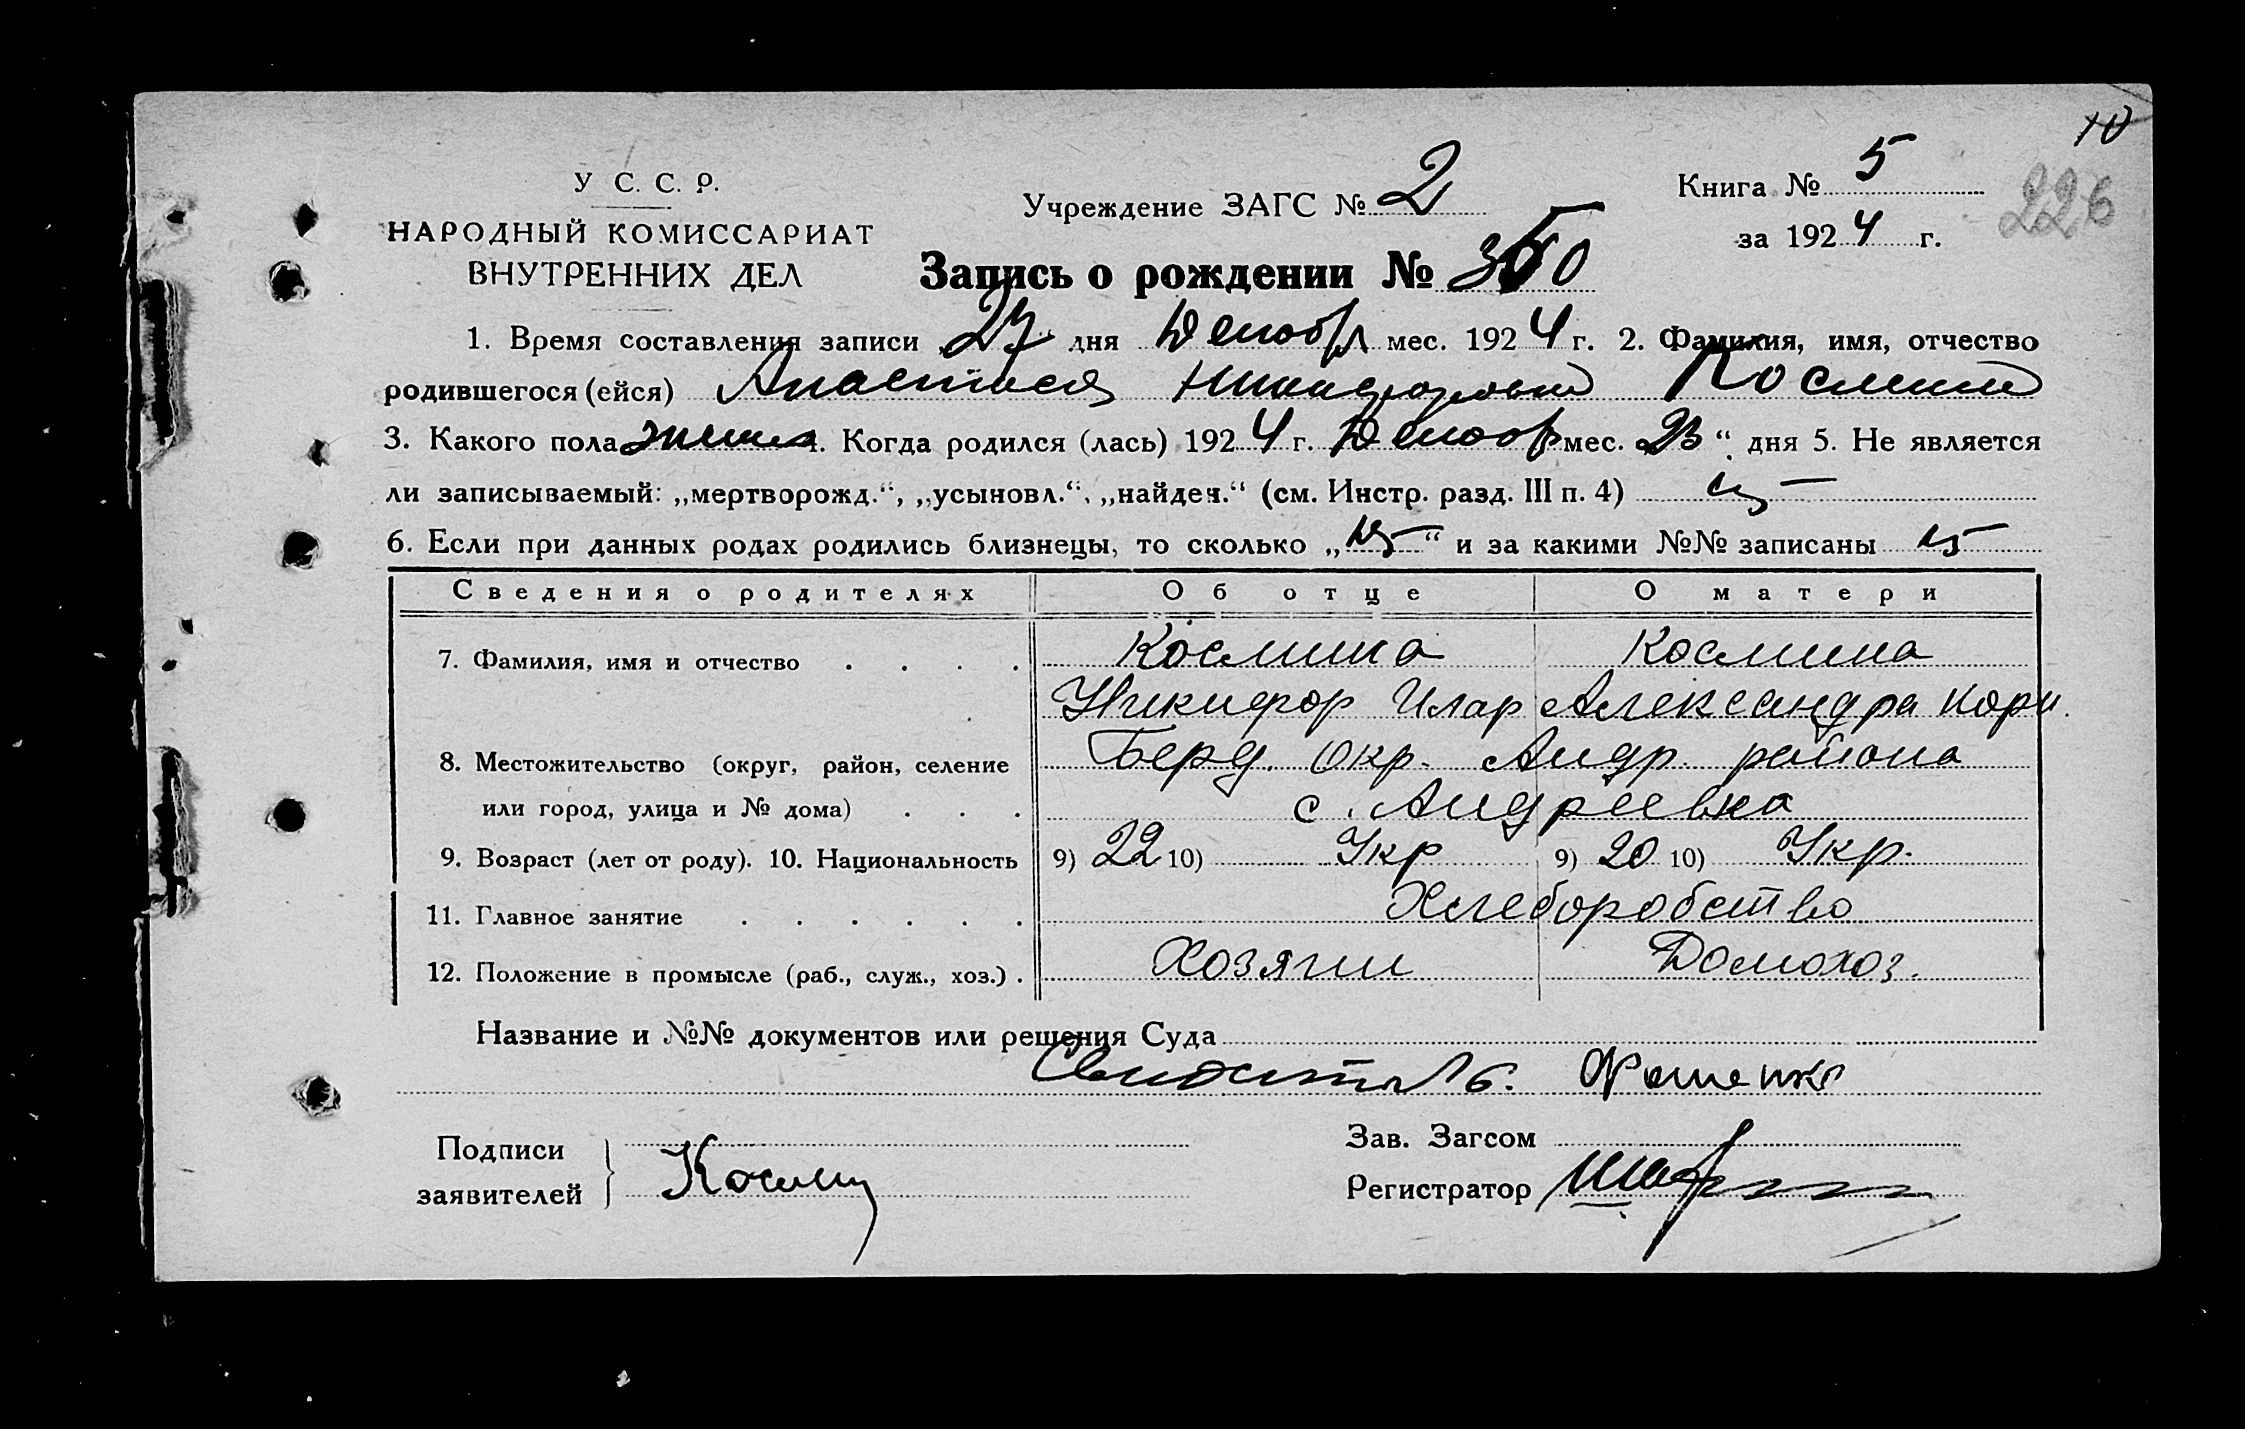 10
У С. С. Р.
НАРОДНЫЙ КОМИССАРИАТ
ВНУТРЕННИХ ДЕЛ
Учреждение ЗАГС № 2
Книга № 5
за 1924 г.
226
Запись о рождении № 350
1. Время составления записи „27“ дня Декабр мес. 1924 г. 2. Фамилия, имя, отчество
родившегося (ейся) Анастасия Космина
3. Какого пола женск 4. Когда родился (лась) 1924 г. Декабр мес. 23“ дня 5. Не является
ли записываемый: „мертворожд.“, „усыновл.“, „найден.“ (см. Инстр. разд. III п. 4)
6. Если при данных родах родились близнецы, то сколько „ “ и за какими №№ записаны
Сведения о родителях Об отце О матери
7. Фамилия, имя и отчество . . . . Космина Космина
Никифор Илар Александра Корн.
8. Местожительство (округ, район, селение Берд. Окр. Андр. района
или город, улица и № дома) . . . с. Андреевка
9. Возраст (лет от роду). 10. Национальность 9) 22 10) Укр 9) 20 10) Укр.
11. Главное занятие . . . . . . Хлеборобство
12. Положение в промысле (раб., служ., хоз.) . Хозяин Домохоз.
Название и №№ документов или решения Суда
Подписи
заявителей
Зав. Загсом
Регистратор